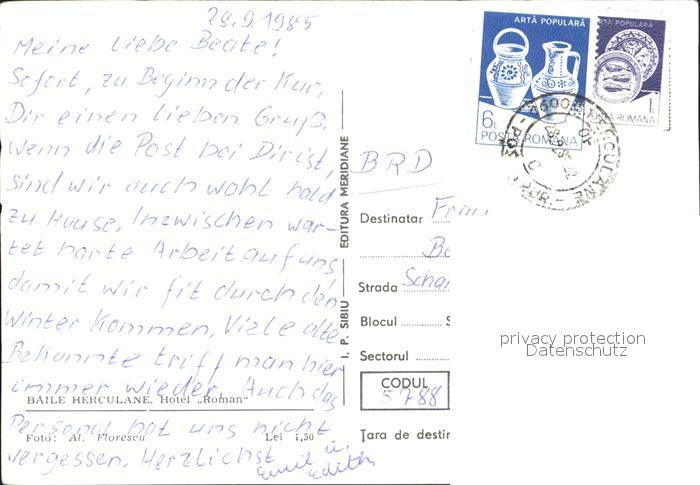 28.9.1985
Meine liebe Beate!
Sofort, zu Beginn der Kur,
Dir einen lieben Gruß.
Wenn die Post bei Dir ist,
sind wir auch wohl bald
zu Hause. Inzwischen war-
tet harte Arbeit auf uns,
damit wir fit durch den
Winter kommen. Viele alte
Bekannte triff man hier
immer wieder. Auch das
Personal hat uns nicht
vergessen. Herzlichst
Emil u.
Edith
BĂILE HERCULANE. Hotel „Roman"
Foto: Al. Florescu Lei 1,50
I. P. SIBIU EDITURA MERIDIANE
ARTĂ POPULARĂ
6L
POSTA ROMANA
ARTĂ POPULARĂ
1L
POSTA ROMANA
BRD
Destinatar
Be
Strada
Blocul S
Sectorul
CODUL
5788
Țara de destin
privacy protection
Datenschutz